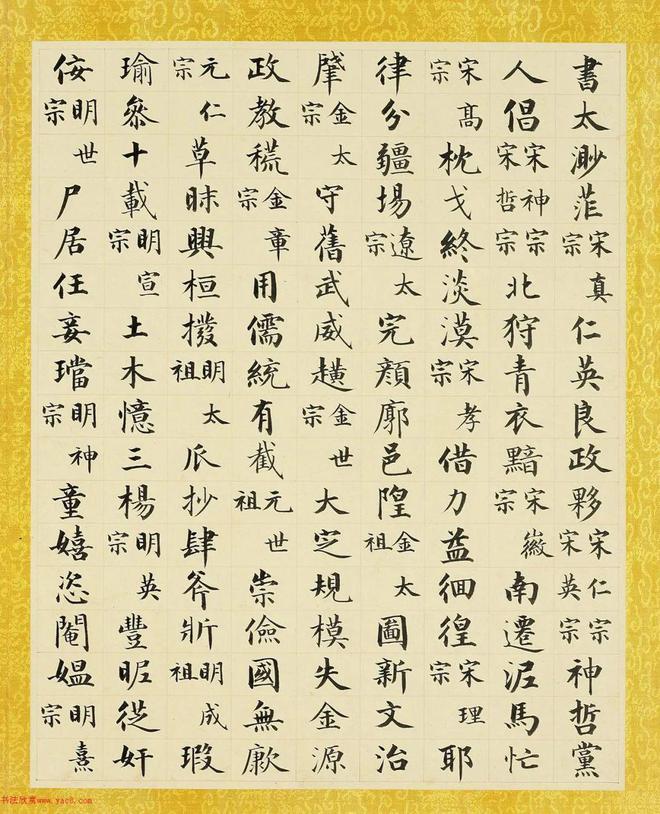 書太渺茫宋真宗仁英良政夥宋仁宗宋英宗神哲黨
人倡宋神宗宋哲宗北狩青衣黯宋徽宗南遷泥馬忙
宋高宗枕戈終淡漠宋孝宗借力益徊徨宋理宗耶
律分疆場遼太宗完顏廓邑隍金太祖圖新文治
肇金太宗守舊武威趪金世宗大定規模失金源
政教稊金章宗用儒統有截元世祖崇儉國無歉
元仁宗草昧興桓撥明太祖爪抄肆斧斨明成祖瑕
瑜參十載明宣宗土木憶三楊明英宗豐昵從奸
佞明世宗尸居任妾璫明神宗童嬉恣閹媼明熹宗
书法欣赏www.yac8.com